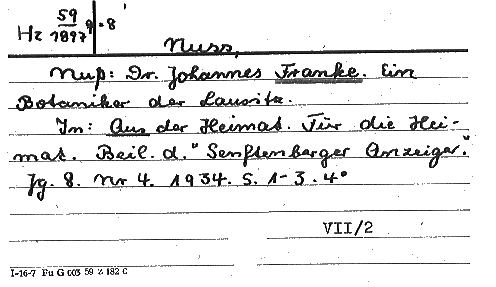 Hz 59/1897 9.8
Nuss,
Nuß: Dr. Johannes Franke. Ein
Botaniker der Lausitz.
In: Aus der Heimat. Für die Hei-
mat. Beil. d. "Senftenberger Anzeiger".
Jg. 8. Nr 4. 1934. S. 1-3. 4°
VII/2
I-16-7 Fu G 003 59 Z 182 C